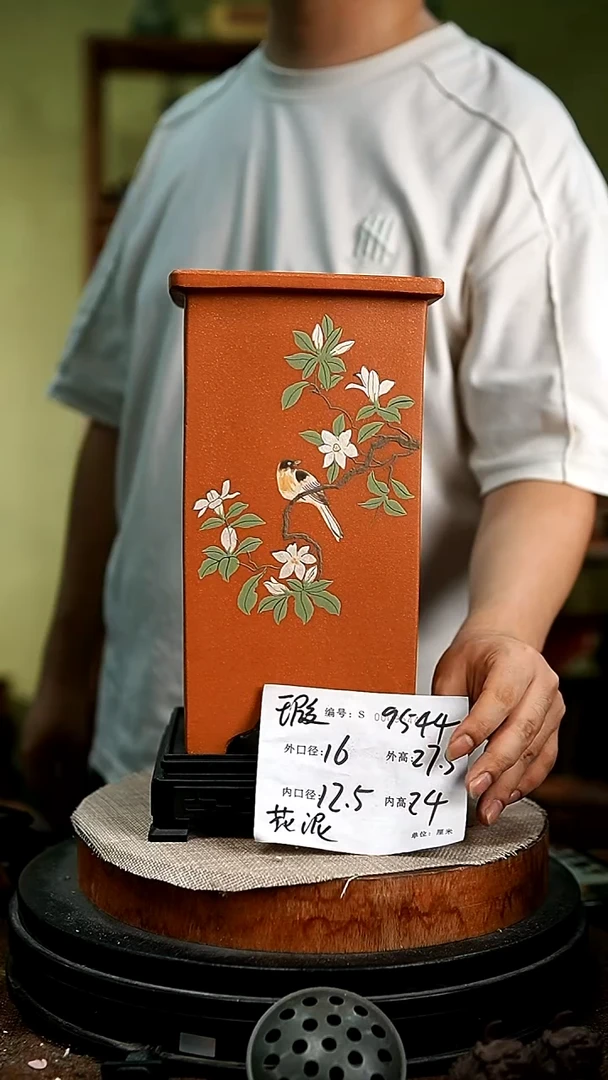 瑕 编号: S 009544
外口径: 16 外高: 27.5
内口径: 12.5 内高: 24
花泥 单位: 厘米